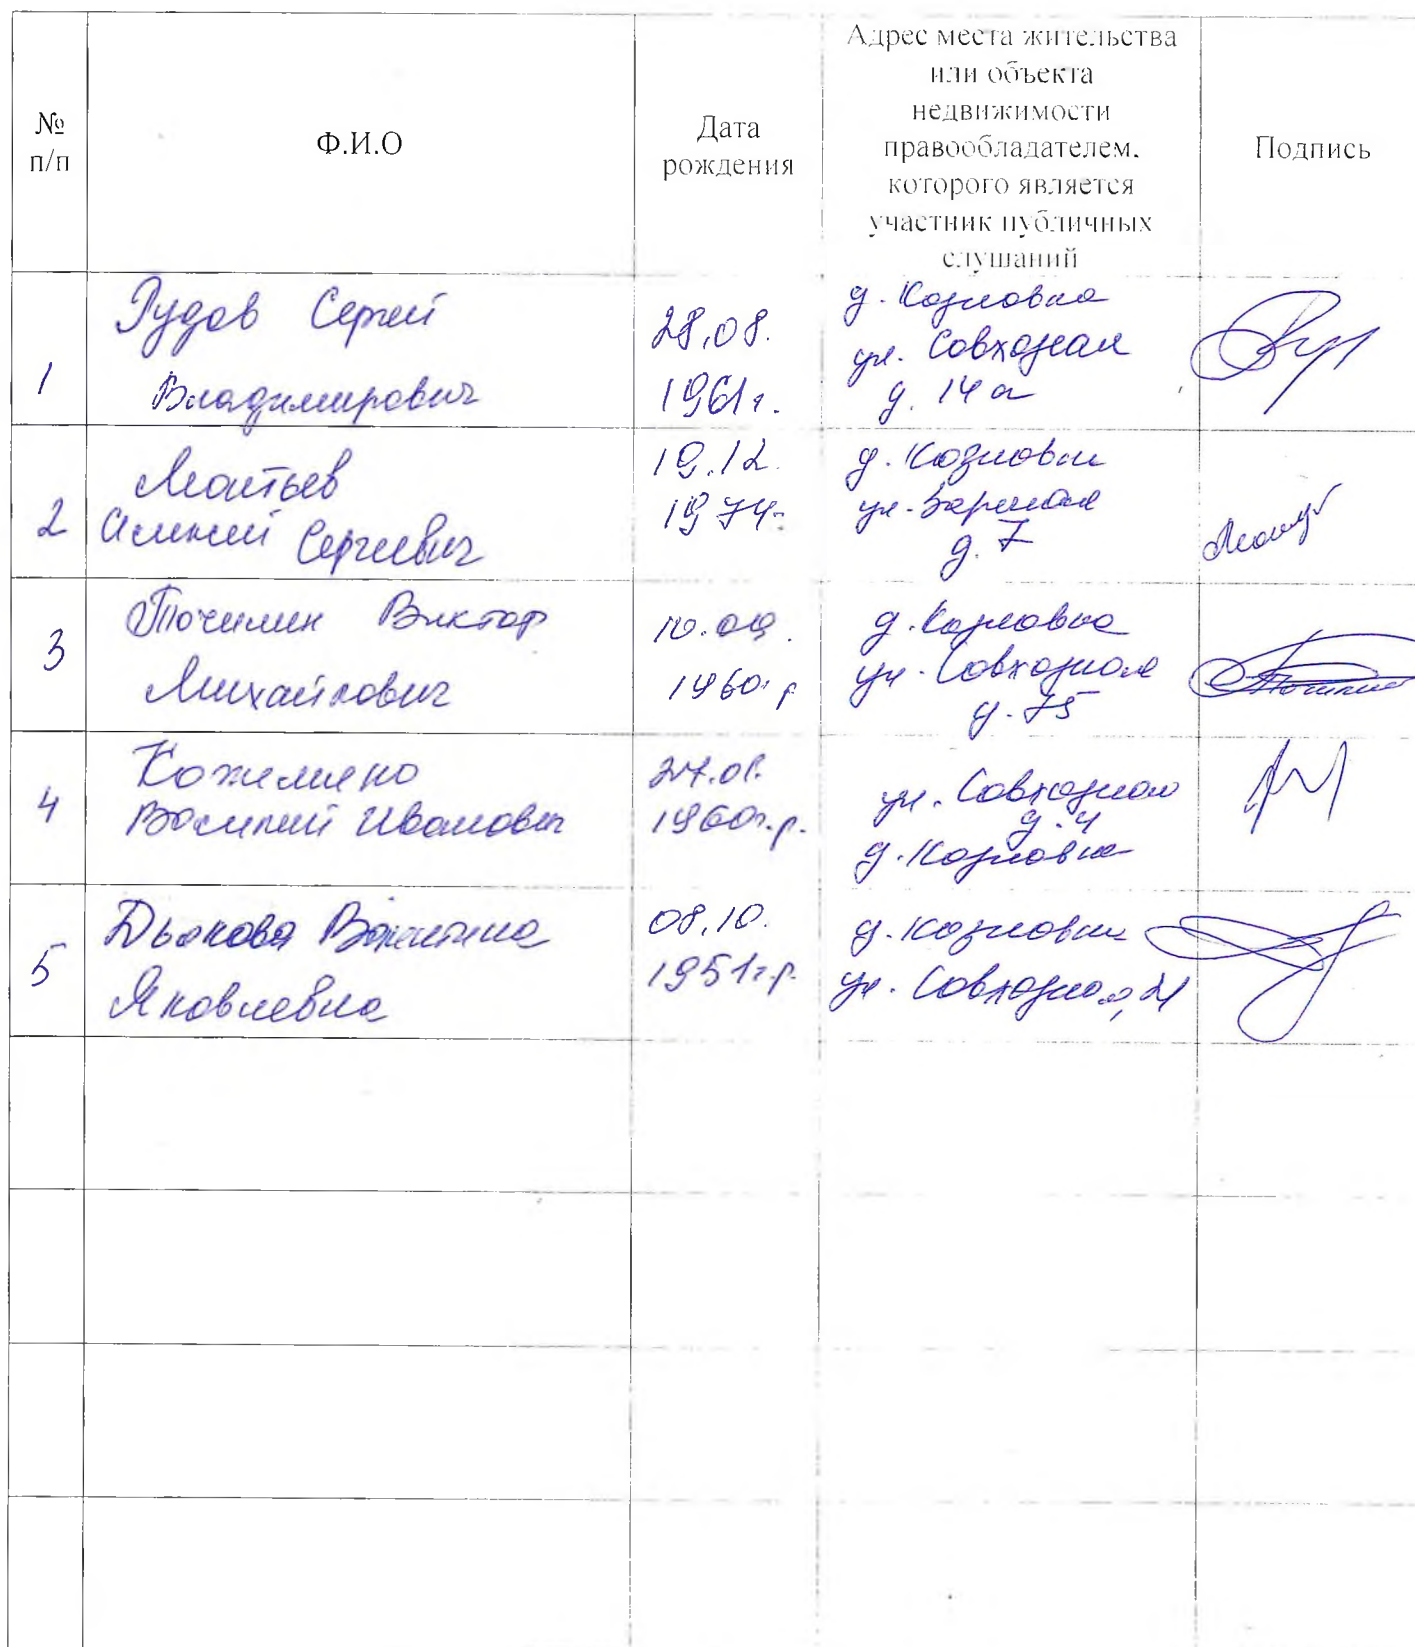 №
п/п
Ф.И.О
Дата
рождения
Адрес места жительства
или объекта
недвижимости
правообладателем,
которого является
участник публичных
слушаний
Подпись
1
Рудов Сергей
Владимирович
28.08.
1961г.
д. Козловка
ул. Совхозная
д. 14а
2
Леонтьев
Алексей Сергеевич
19.12.
1974
д. Козловка
ул. Заречная
д. 7
3
Точилин Виктор
Михайлович
10.09.
1960г.р
д. Козловка
ул. Совхозная
д. 75
4
Кожемяко
Василий Иванович
1960г.р.
ул. Совхозная
д. 4
д. Козловка
5
Дьякова Валентина
Яковлевна
08.10.
1951г.р.
д. Козловка
ул. Совхозная, 21